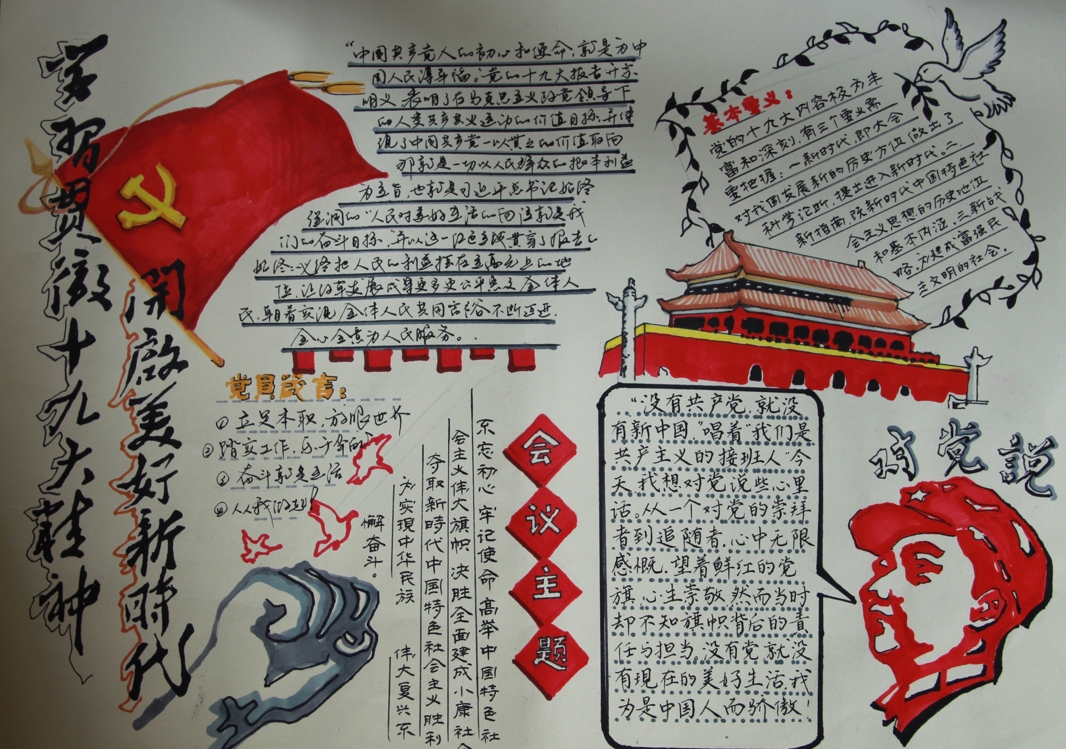 学习贯徹十九大精神
開啟美好新時代
“中国共产党人的初心和使命,就是为中
国人民谋幸福”党的十九大报告开宗
明义,表明了在马克思主义政党领导下
的人类共产主义运动的价值目标,并体
现了中国共产党一以贯之的价值取向
那就是一切以人民群众的根本利益
为主旨,也就是习近平总书记始终
强调的“人民对美好生活的向往就是我
们的奋斗目标,并以这一红色主线贯穿了报告
始终:始终把人民的利益摆在至高无上的地
位,让改革发展成果更多更公平惠及全体人
民,朝着实现全体人民共同富裕不断迈进,
全心全意为人民服务。
基本要义:
党的十九大内容极为丰
富和深刻,有三个要义需
要把握:一新时代,即大会
对我国发展新的历史方位做出了
科学论断,提出进入新时代,二
新指南,院新时代中国特色社
会主义思想的历史地位
和基本内涵,三新战
略,为建成富强民
主文明的社会.
党员箴言:
①立足本职,放眼世界
②踏实工作,乐于奉
③奋斗就是生活
④人人
不忘初心牢记使命高举中国特色社
会主义伟大旗帜,决胜全面建成小康社
夺取新時代中国特色社会主义胜利
为实現中华民族 伟大复兴不
懈奋斗。
会议主题
“没有共产党,就没
有新中国”唱着“我们是
共产主义的接班人”今
天我想对党说些心里
话。从一个对党的崇拜
者到追随者,心中无限
感慨.望着鲜红的党
旗,心生崇敬然而当时
却不知旗帜背后的责
任与担当。没有党就没
有現在的美好生活,我
为是中国人而骄傲!
对党説